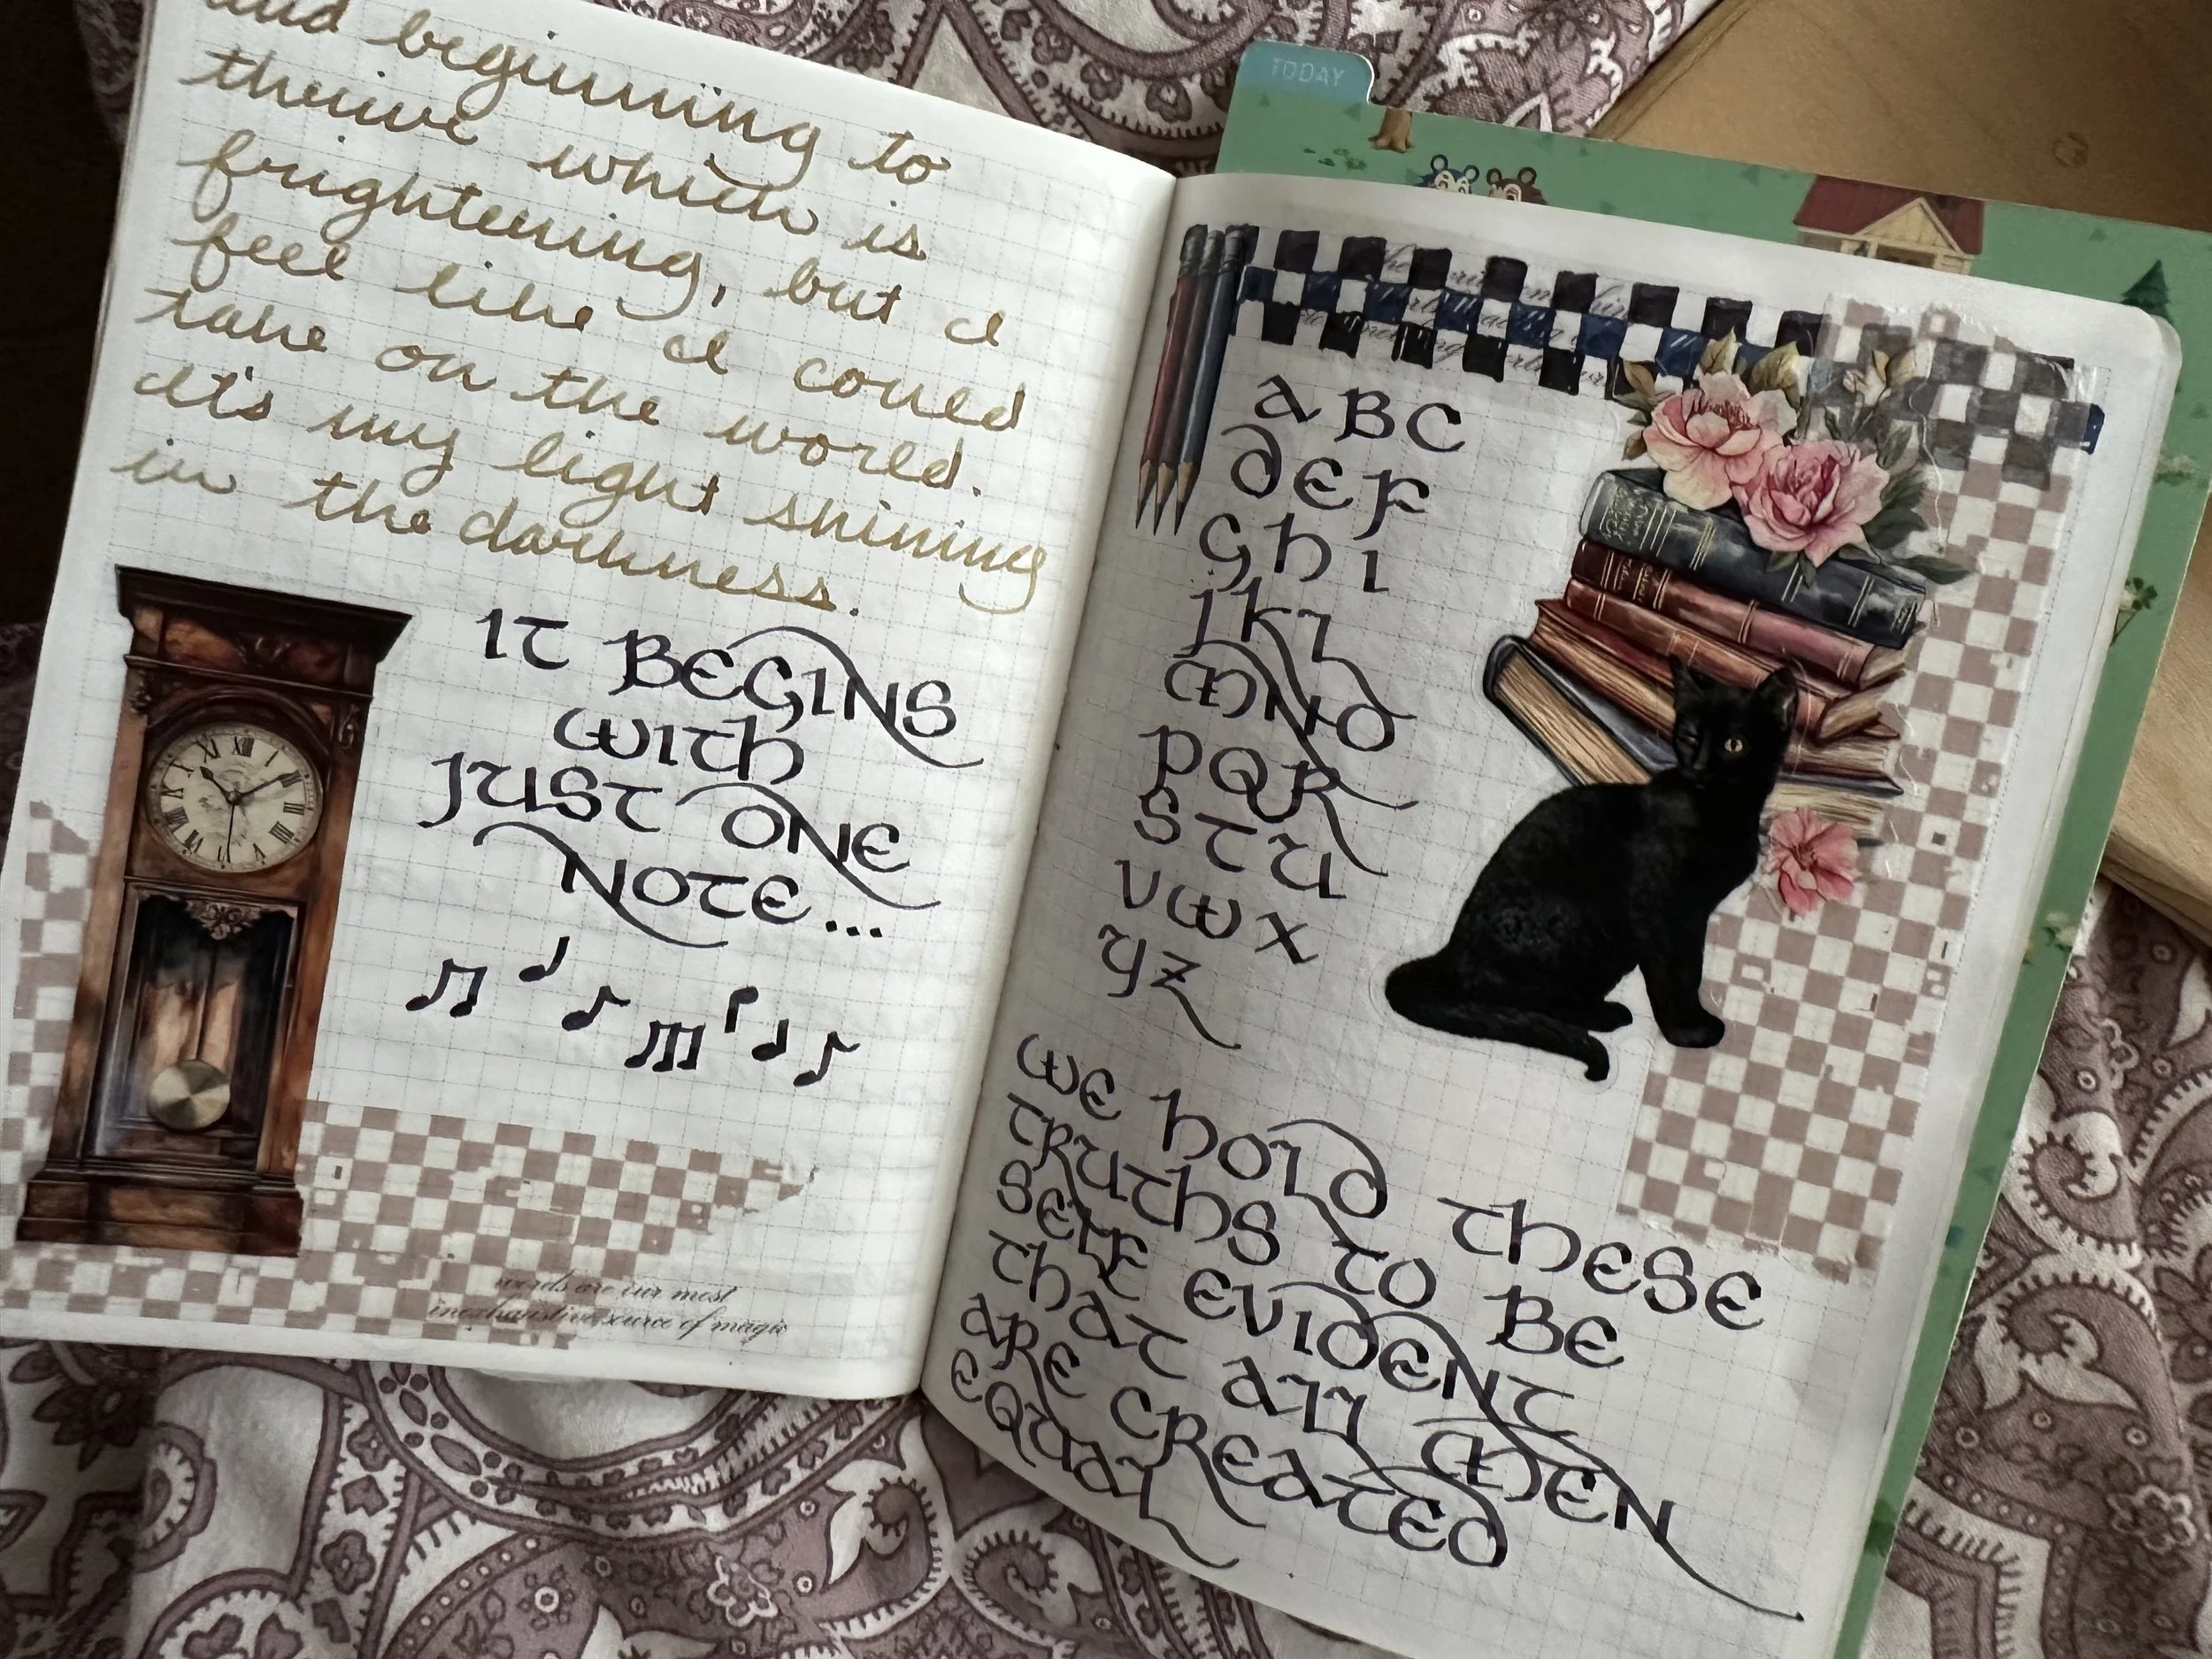 and beginning to
thrive which is
frightening, but I
feel like I could
take on the world.
It's my light shining
in the darkness.
IT BEGINS
WITH
JUST ONE
NOTE...
words are our most
inexhaustive source of magic
TODAY
ABC
DEF
GHI
JKL
MNO
PQR
STU
VWX
YZ
WE HOLD THESE
TRUTHS TO BE
SELF EVIDENT
THAT ALL MEN
ARE CREATED
EQUAL